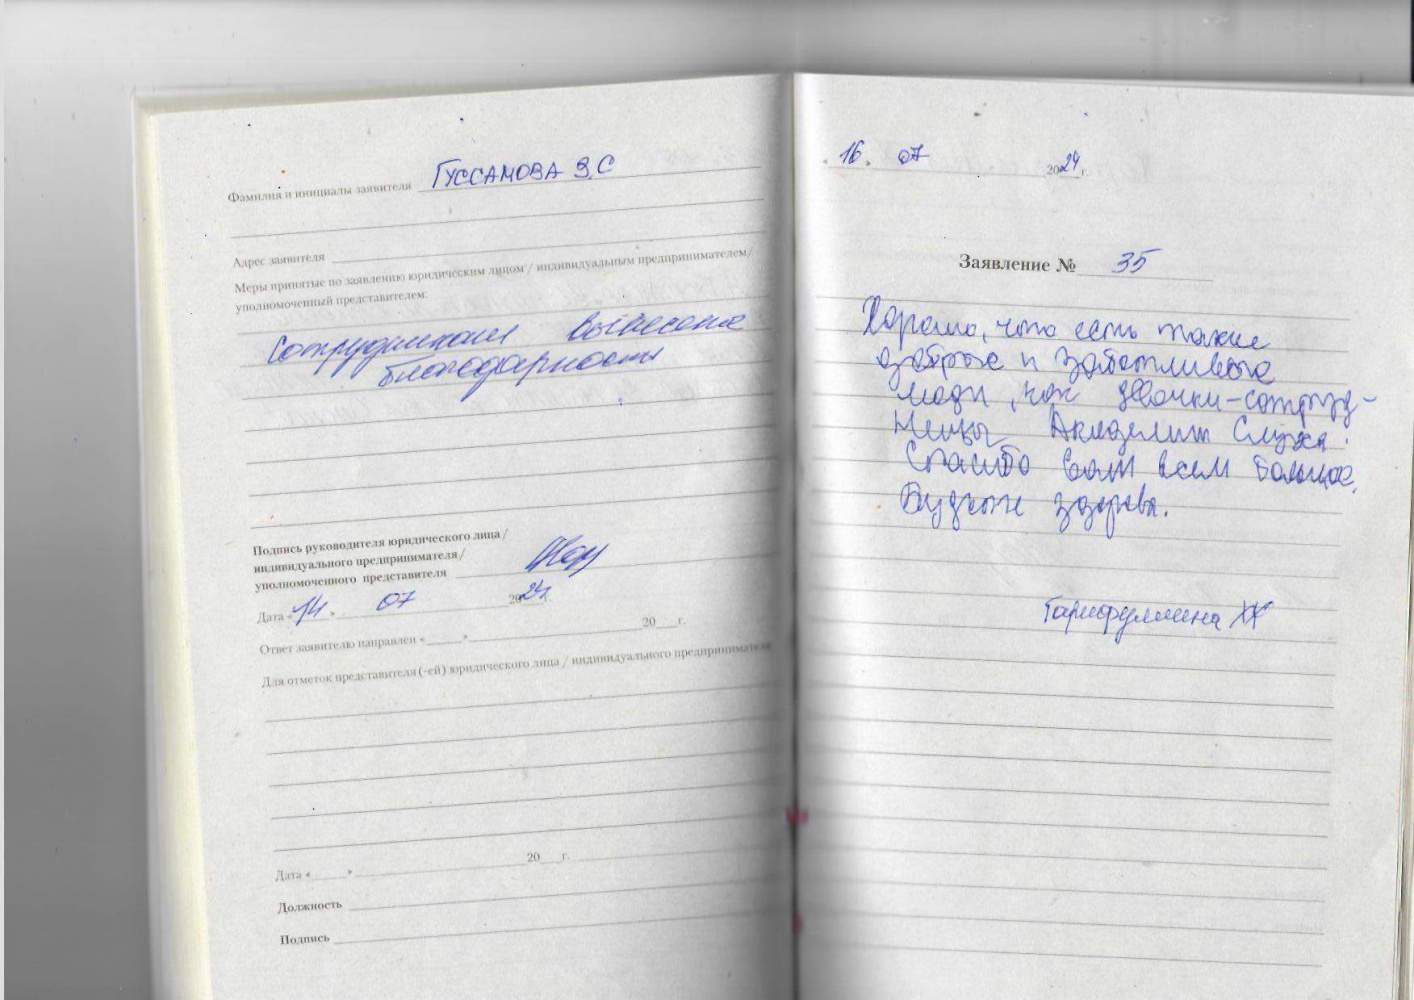 Фамилия и инициалы заявителя ГУССАМОВА З.С
Адрес заявителя
Меры принятые по заявлению юридическим лицом / индивидуальным предпринимателем/
уполномоченный представителем:
Сотрудникам вынесена
благодарность
Подпись руководителя юридического лица/
индивидуального предпринимателя/
уполномоченного представителя
Дата «14» 07 2024.
Ответ заявителю направлен «  »  20  г.
Для отметок представителя (-ей) юридического лица / индивидуального предпринимателя
Дата «  »  20  г.
Должность
Подпись
«16» 07 2024 г.
Заявление № 35
Хорошо, что есть такие
добрые и заботливые
люди, как девочки-сотруд-
ницы Академии Слуха.
Спасибо вам всем большое.
Будьте здоровы.
Гарифуллина